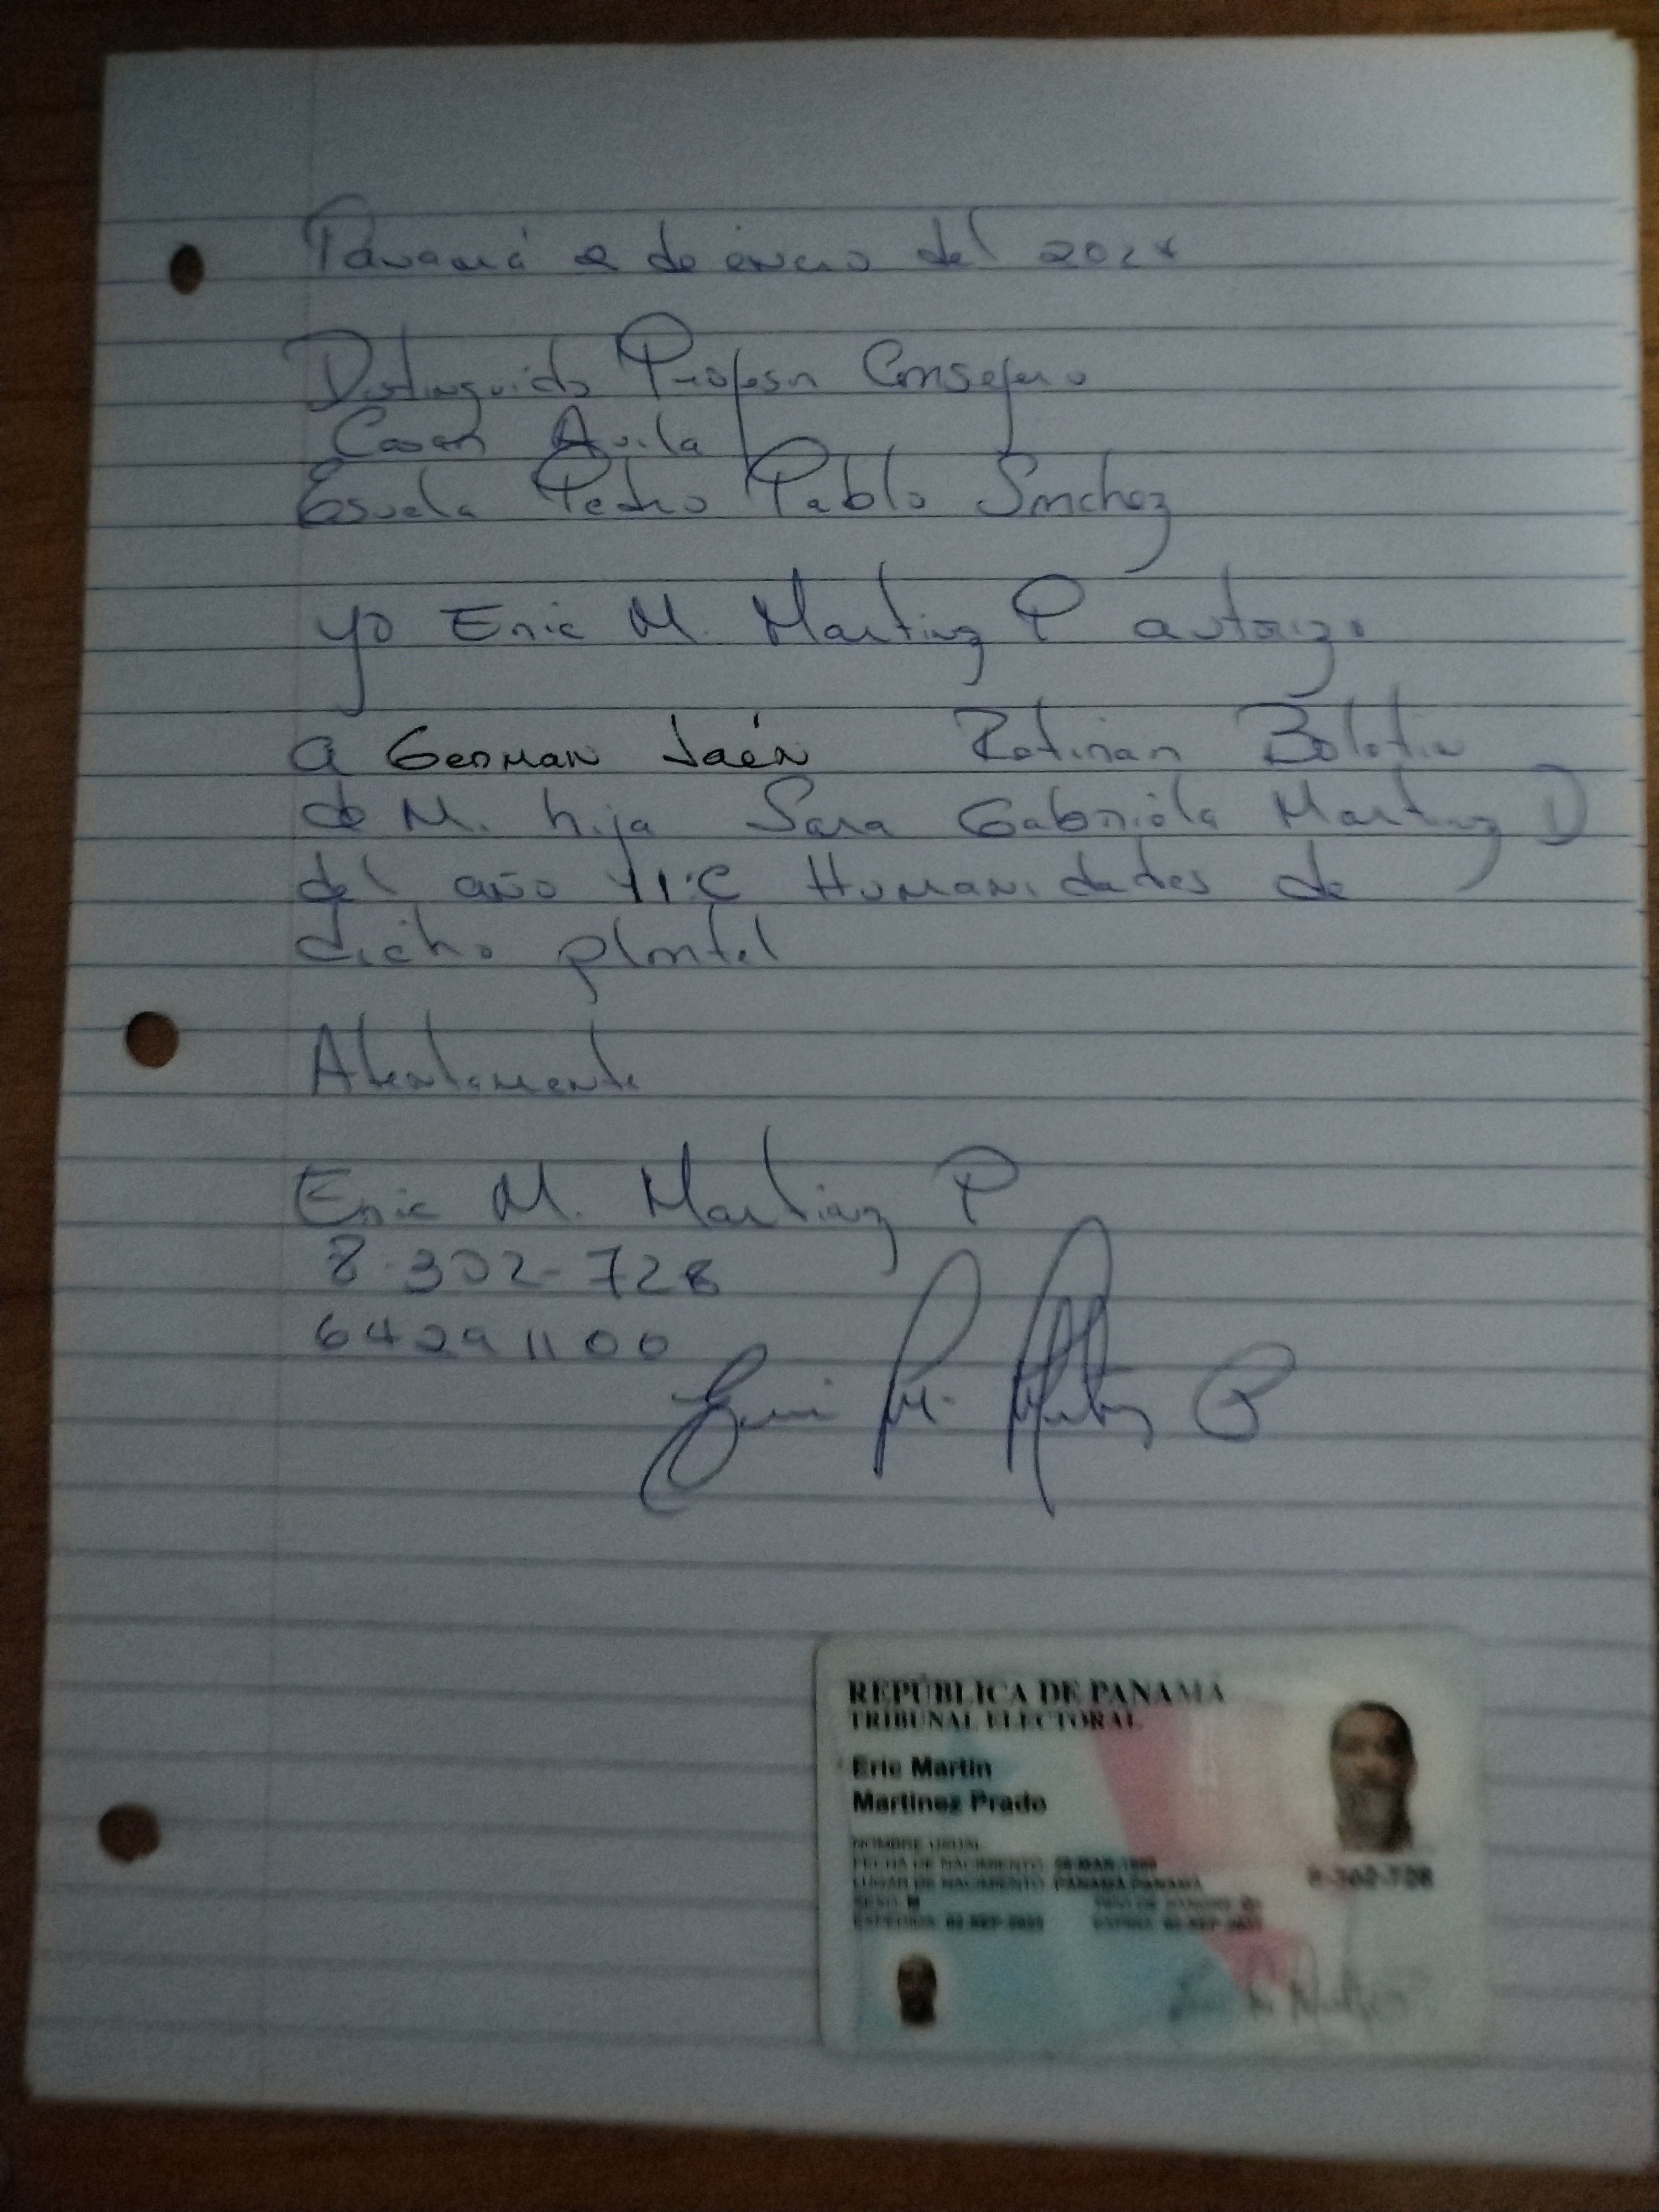 Panamá 2 de enero del 2024
Distinguido Profesor Consejero
Cesar Avila
Escuela Pedro Pablo Snchez
yo Eric M. Martinez P autorizo
a German Jaén Retirar Boletin
de M. hija Sara Gabriela Martinez D
del año 11·C Humanidades de
dicho plantel
Atentamente
Eric M. Martinez P
8-302-728
64291100
Eric M. Martinez P
REPÚBLICA DE PANAMÁ
TRIBUNAL ELECTORAL
Eric Martin
Martinez Prado
NOMBRE USUAL
FECHA DE NACIMIENTO:
LUGAR DE NACIMIENTO: PANAMA, PANAMÁ
8-302-728
SEXO: M TIPO DE SANGRE:
EXPEDIDA: EXPIRA: